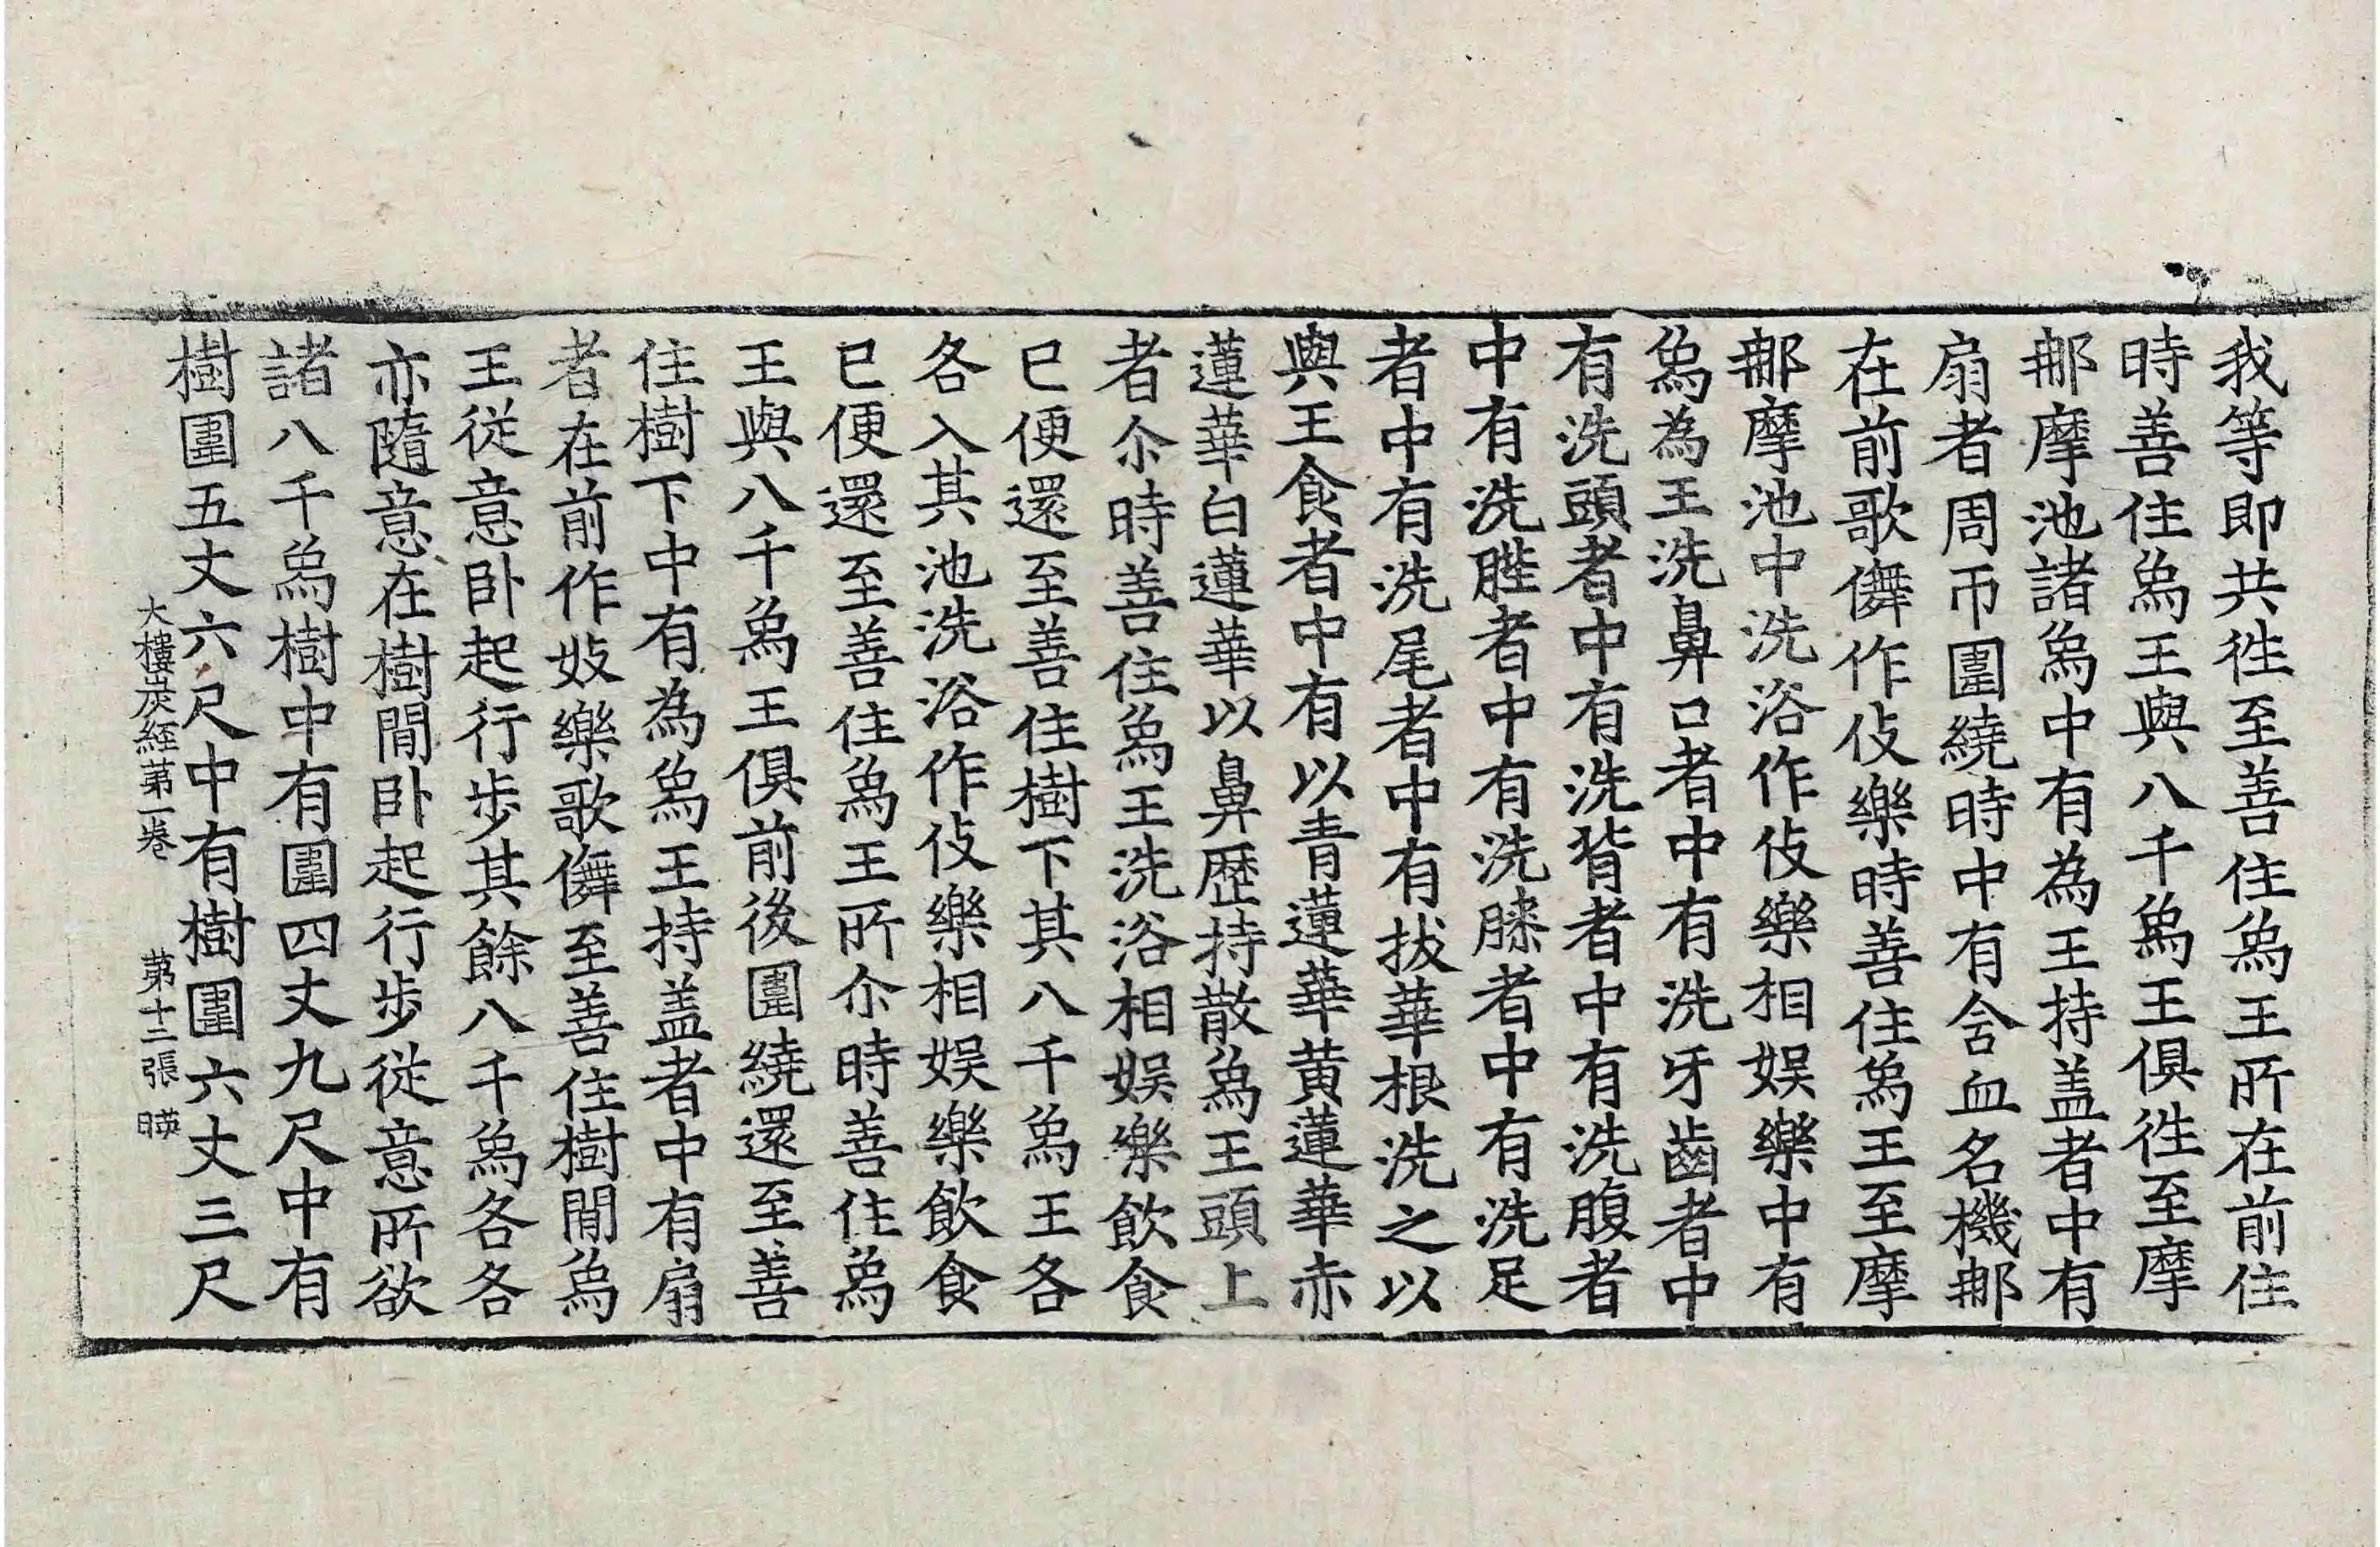 我等即共徃至善住爲王所在前住
時善住爲王與八千爲王俱徃至摩
䣕摩池諸爲中有為王持盖者中有
扇者周帀圍繞時中有舍血名機䣕
在前歌儛作伎樂時善住爲王至摩
䣕摩池中洗浴作伎樂相娱樂中有
爲為王洗鼻口者中有洗牙齒者中
有洗頭者中有洗背者中有洗腹者
中有洗䏶者中有洗膝者中有洗足
者中有洗尾者中有拔華根洗之以
與王食者中有以青蓮華黄蓮華赤
蓮華白蓮華以鼻歷持散爲王頭上
者尒時善住爲王洗浴相娱樂飲食
已便還至善住樹下其八千爲王各
各入其池洗浴作伎樂相娱樂飲食
已便還至善住爲王所尒時善住爲
王與八千爲王俱前後圍繞還至善
住樹下中有為爲王持盖者中有扇
者在前作妓樂歌儛至善住樹間爲
王從意卧起行步其餘八千爲各各
亦隨意在樹間卧起行步從意所欲
諸八千爲樹中有圍四丈九尺中有
樹圍五丈六尺中有樹圍六丈三尺
大樓炭經第一卷 第十二張 暎